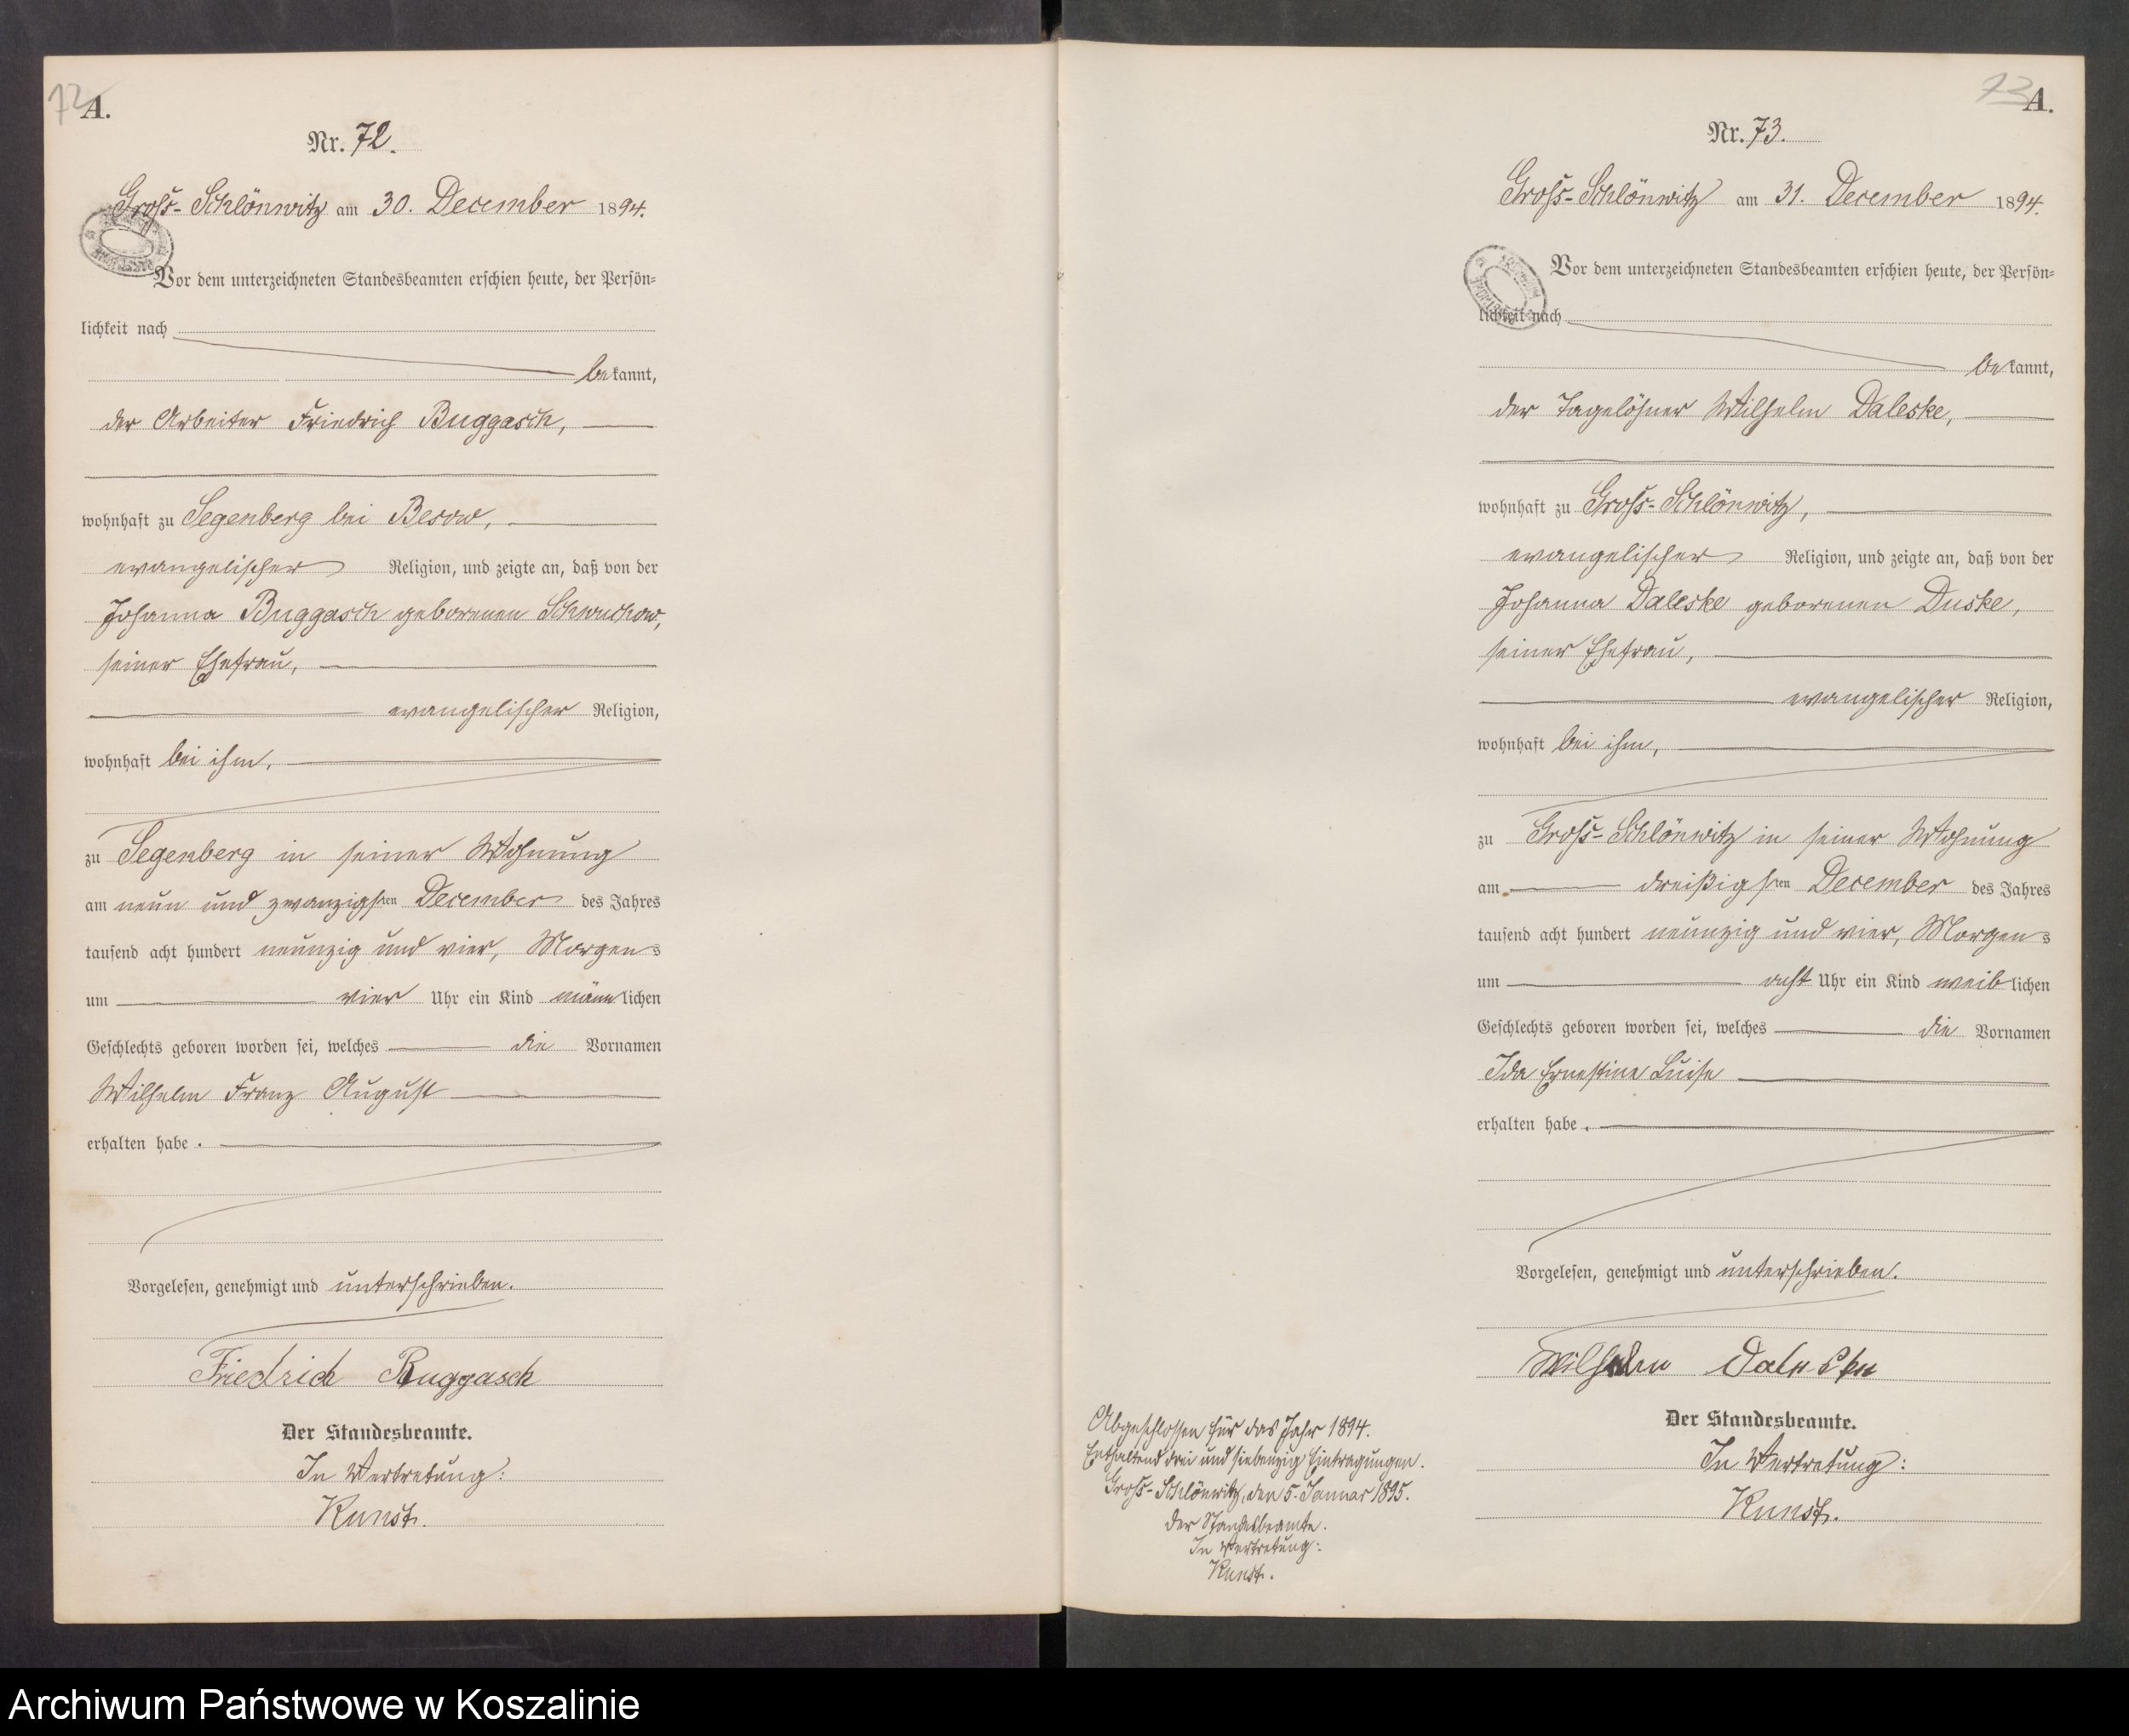 72
A.
Nr. 72.
Groß-Schlönwitz am 30. December 1894.
Vor dem unterzeichneten Standesbeamten erschien heute, der Persön=
lichkeit nach
bekannt,
der Arbeiter Friedrich Buggasch,
wohnhaft zu Segenberg bei Besow,
evangelischer Religion, und zeigte an, daß von der
Johanna Buggasch geborenen Schwuchow,
seiner Ehefrau,
evangelischer Religion,
wohnhaft bei ihm,
zu Segenberg in seiner Wohnung
am neun und zwanzigsten December des Jahres
tausend acht hundert neunzig und vier, Morgens
um vier Uhr ein Kind männlichen
Geschlechts geboren worden sei, welches die Vornamen
Wilhelm Franz August
erhalten habe.
Vorgelesen, genehmigt und unterschrieben.
Friedrich Buggasch
Der Standesbeamte.
In Vertretung:
Kunst.
73
A.
Nr. 73.
Groß-Schlönwitz am 31. December 1894.
Vor dem unterzeichneten Standesbeamten erschien heute, der Persön=
lichkeit nach
bekannt,
der Tagelöhner Wilhelm Daleske,
wohnhaft zu Groß-Schlönwitz,
evangelischer Religion, und zeigte an, daß von der
Johanna Daleske geborenen Duske,
seiner Ehefrau,
evangelischer Religion,
wohnhaft bei ihm,
zu Groß-Schlönwitz in seiner Wohnung
am dreißigsten December des Jahres
tausend acht hundert neunzig und vier, Morgens
um acht Uhr ein Kind weiblichen
Geschlechts geboren worden sei, welches die Vornamen
Ida Ernestine Luise
erhalten habe.
Vorgelesen, genehmigt und unterschrieben.
Wilhelm Daleske
Der Standesbeamte.
In Vertretung:
Kunst.
Abgeschlossen für das Jahr 1894.
Enthaltend drei und siebenzig Eintragungen.
Groß-Schlönwitz, den 5. Januar 1895.
Der Standesbeamte.
In Vertretung:
Kunst.
Archiwum Państwowe w Koszalinie